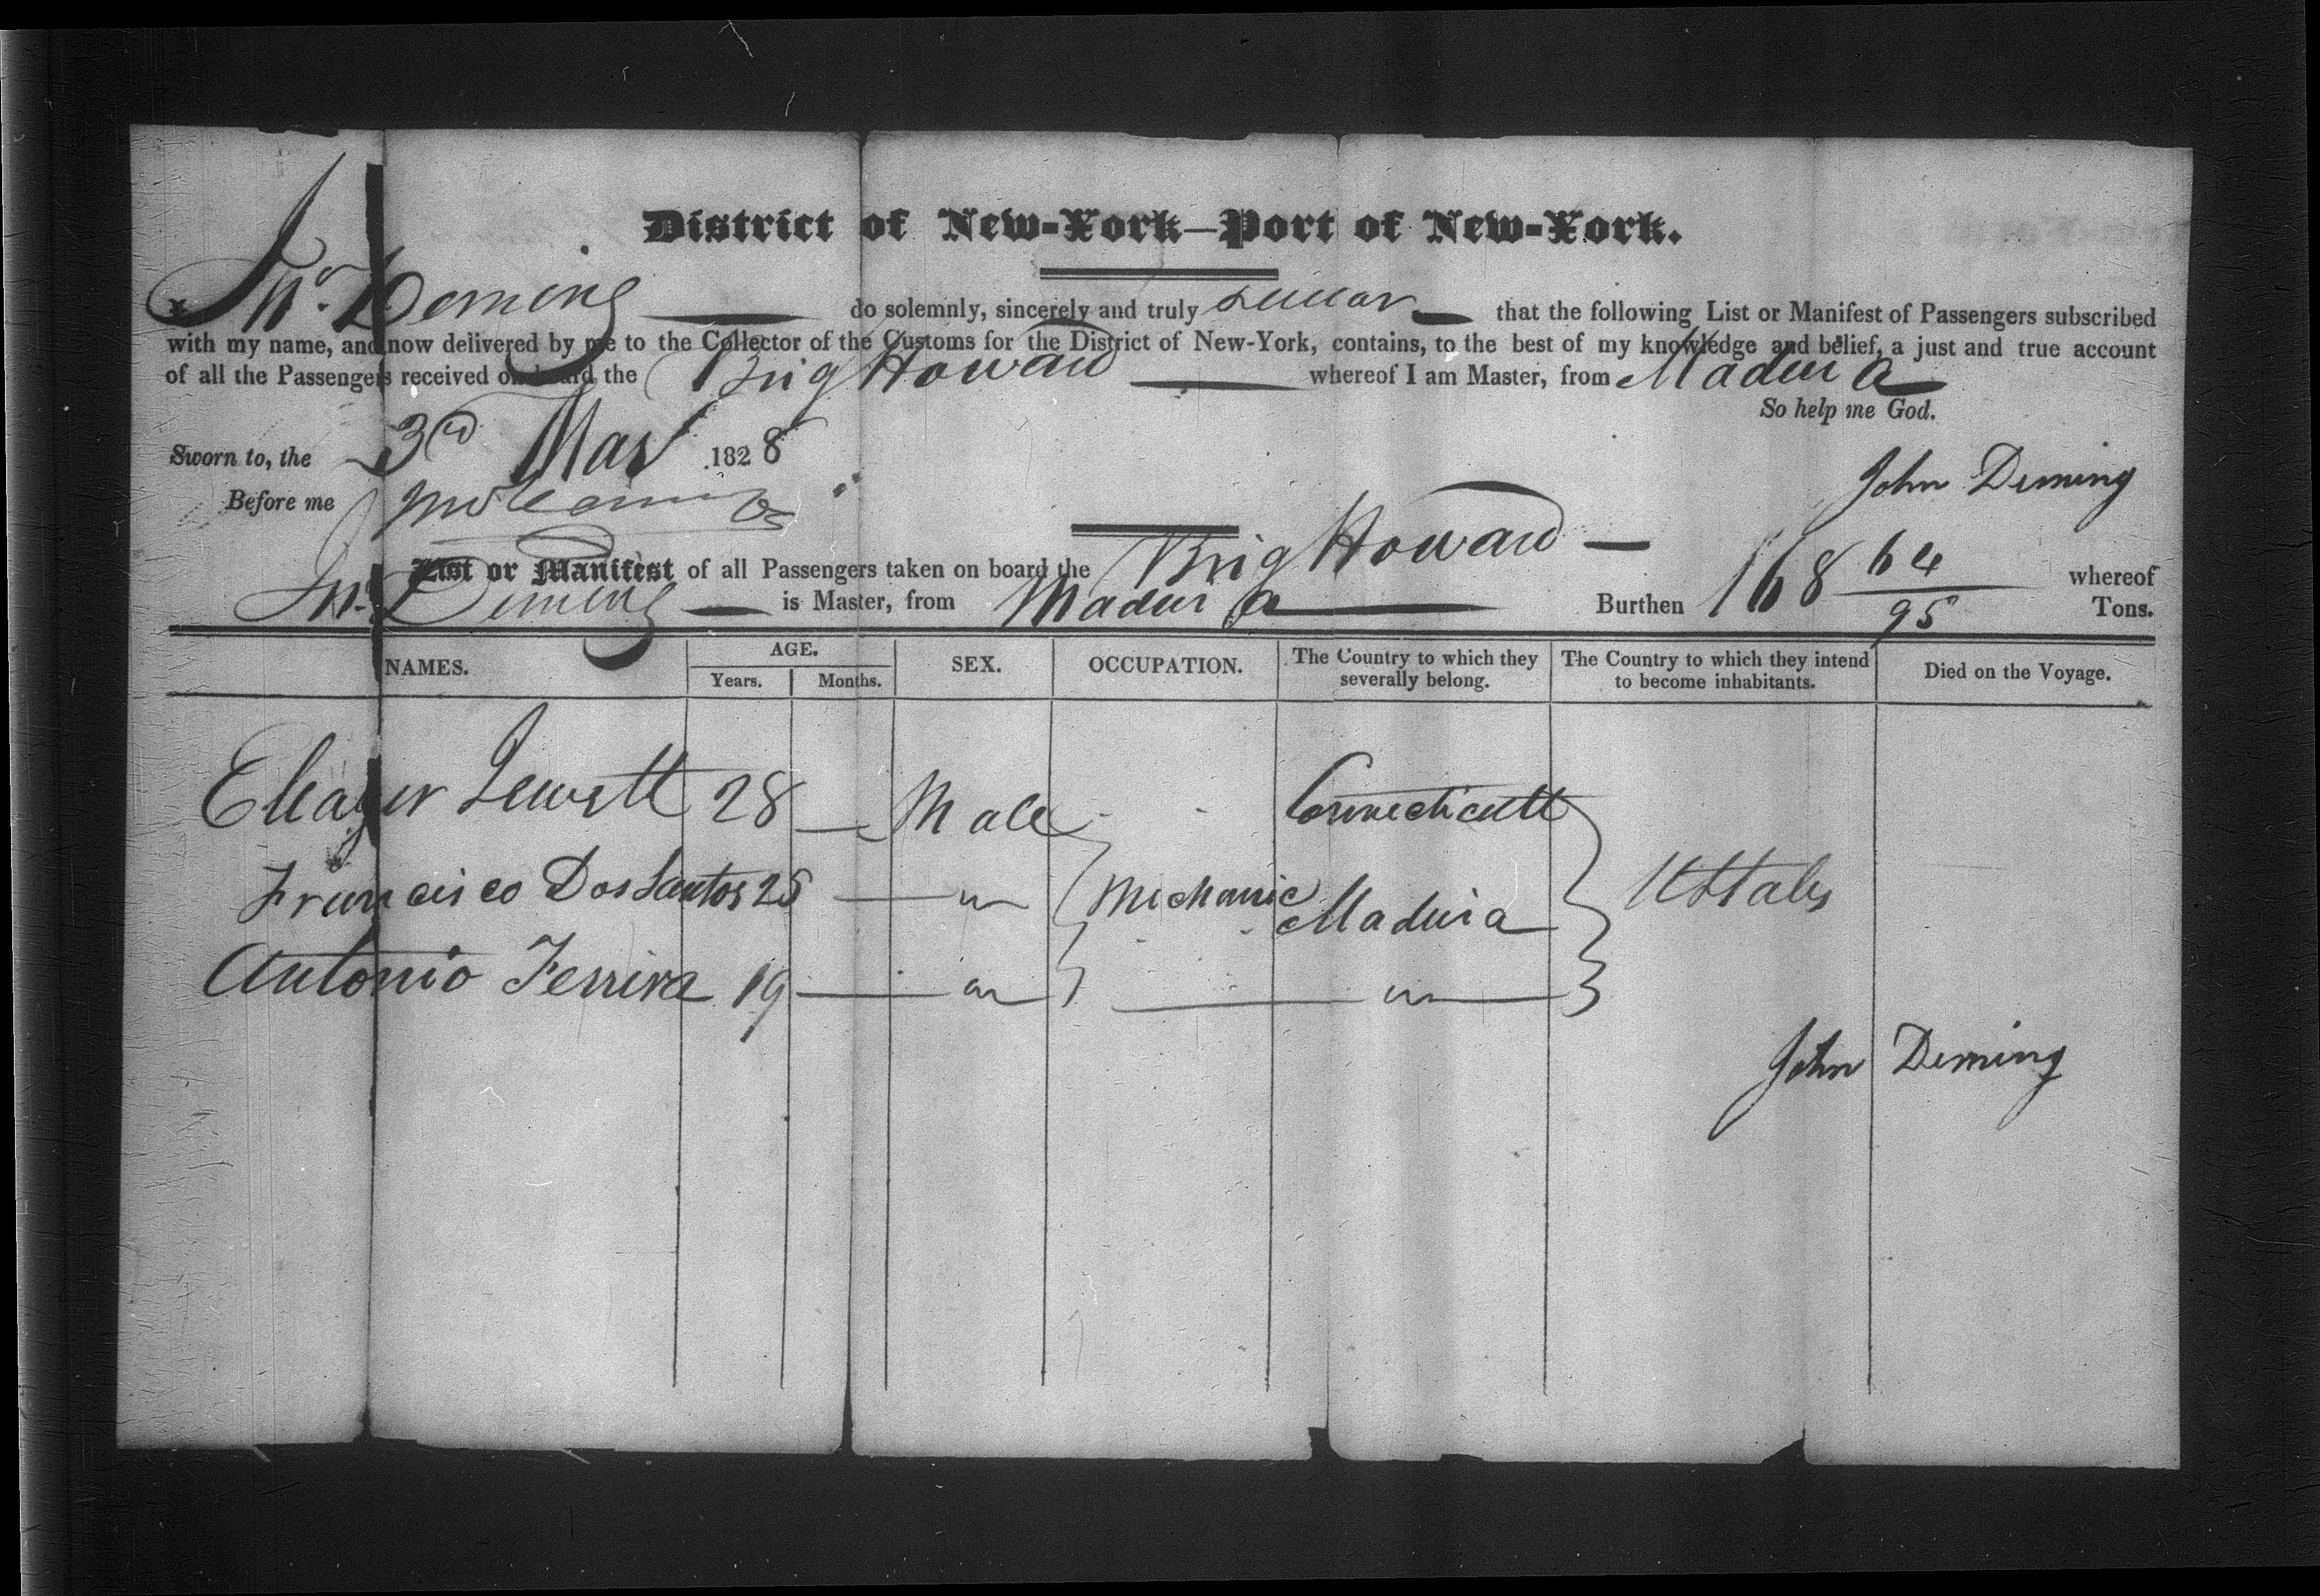 District of New-York—Port of New-York.
I, Jnº. Deming do solemnly, sincerely and truly swear that the following List or Manifest of Passengers subscribed
with my name, and now delivered by me to the Collector of the Customs for the District of New-York, contains, to the best of my knowledge and belief, a just and true account
of all the Passengers received on board the Brig Howard whereof I am Master, from Madeira
So help me God.
Sworn to, the 3d May 1828
John Deming
Before me
List or Manifest of all Passengers taken on board the Brig Howard — whereof
Jnº. Deming is Master, from Madeira Burthen 168 64/95 Tons.
NAMES. AGE. Years. Months. SEX. OCCUPATION. The Country to which they severally belong. The Country to which they intend to become inhabitants. Died on the Voyage.
Eleazer Jewett 28 — Male Connecticutt
Francisco Dos Santos 25 — " Mechanic Madeira UStates
Antonio Ferrira 19 — " — " —
John Deming